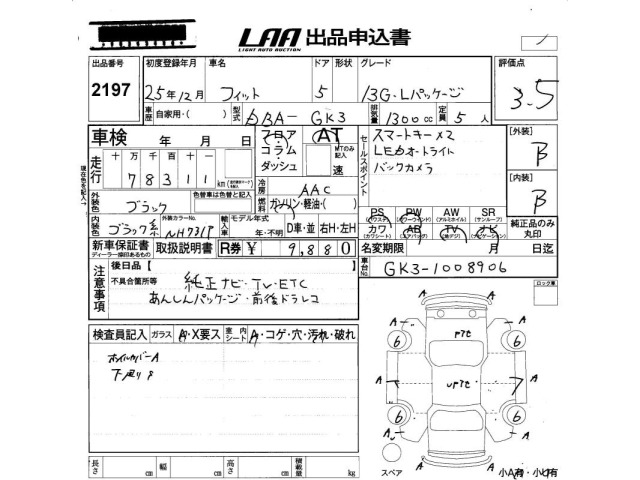 LAA 出品申込書
LIGHT AUTO AUCTION
出品番号 初度登録年月 車名 ドア 形状 グレード 評価点
2197 25年12月 フィット 5 13G・Lパッケージ 3.5
車歴 自家用・( ) 型式 DBA- GK3 排気量 1300cc 定員 5人
車検 年 月 日 フロア AT セールスポイント スマートキー×2 [外装] B
コラム MTのみ記入 LEDオートライト
ダッシュ 速 バックカメラ [内装] B
走行 十 万 千 百 十 一
78311 km
現在色を記入
外装色 ブラック 色替車は色替と記入 冷房 AAC
燃料 ガソリン・軽油・( )
PS PW AW SR
(パワステ) (パワーウインド) (アルミホイル) (サンルーフ) 純正品のみ丸印
カワ AB TV ナビ
(カワシート) (エアバッグ) (地デジ) (ナビゲーション)
内装色 ブラック系 外装カラーNo. NH731P 輸入車 モデル年式 年・不明 D車・並 右H・左H
新車保証書 取扱説明書 R券 ¥ 9,880 名変期限 月 日迄
ディーラー捺印あるもの
車台No. GK3-1008906
注意事項 後日品【 】
不具合箇所等 純正ナビ・TV・ETC
あんしんパッケージ・前後ドラレコ
ロック車
検査員記入 ガラス A・X要ス 室内シート A・コゲ・穴・汚れ・破れ
ホイルカバーA
下廻りP
A A
6 6
A A
6 6
A A
スペア
長さ cm 幅 cm 高さ cm 積載量 kg
小A有・小U有